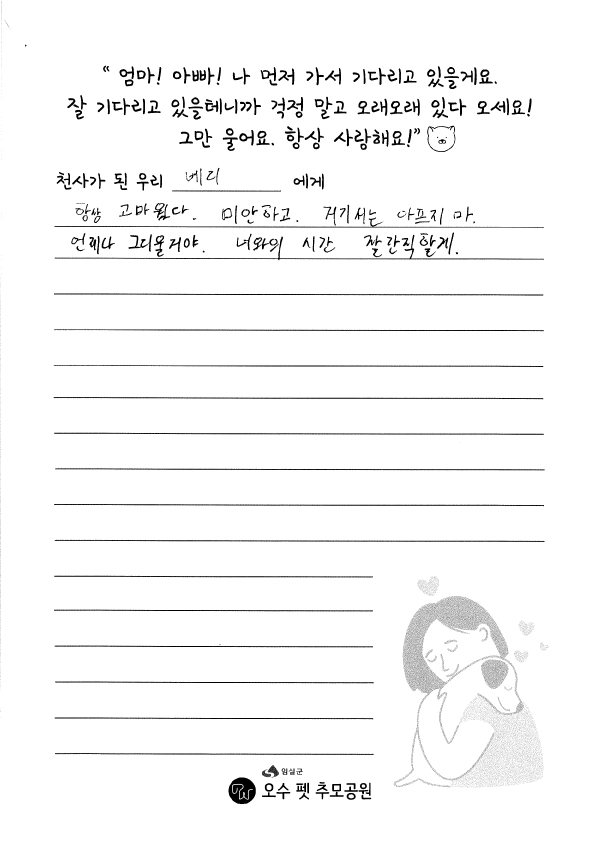 “ 엄마! 아빠! 나 먼저 가서 기다리고 있을게요.
잘 기다리고 있을테니까 걱정 말고 오래오래 있다 오세요!
그만 울어요. 항상 사랑해요!”
천사가 된 우리 베리 에게
항상 고마웠다. 미안하고. 거기서는 아프지 마.
언제나 그리울거야. 너와의 시간 잘간직할게.
임실군
오수 펫 추모공원